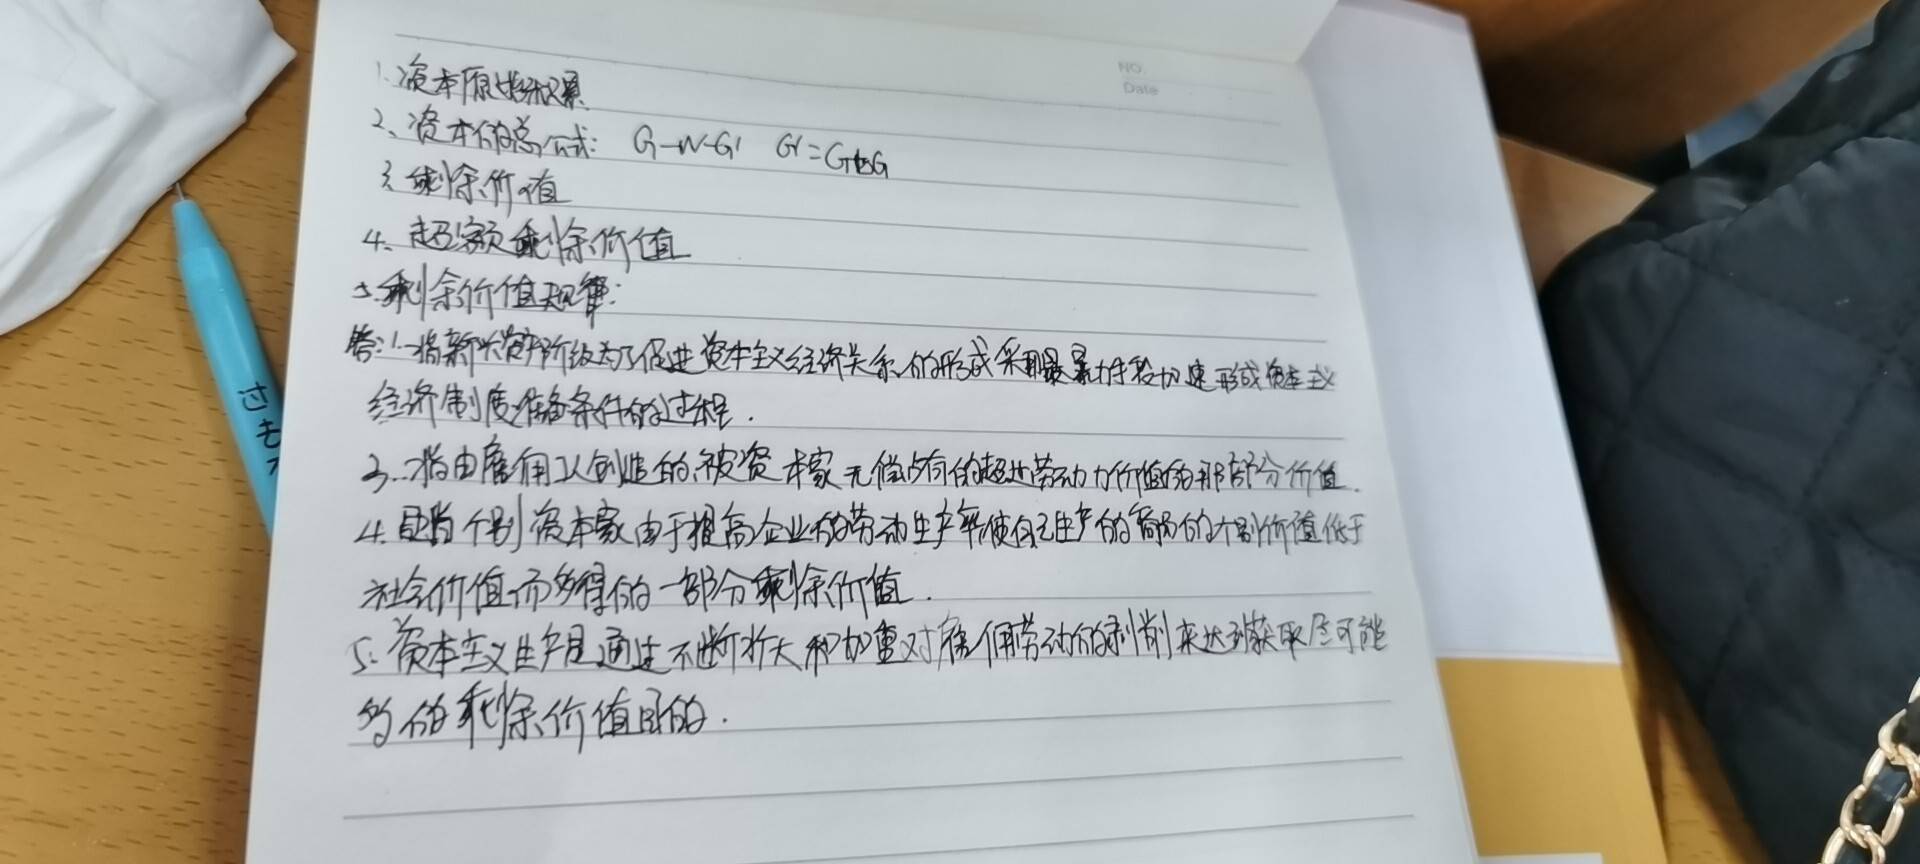 NO.
Date
1、资本原始积累
2、资本的总公式： G-W-G' G'=G+△G
3、剩余价值
4、超额剩余价值
5、剩余价值规律：
答：1、指新兴资产阶级为了促进资本主义经济关系的形成采用最暴力手段加速形成资本主义
经济制度准备条件的过程．
3、指由雇佣工人创造的被资本家无偿占有的超过劳动力价值的那部分价值．
4、是指个别资本家由于提高企业的劳动生产率使自己生产的商品的个别价值低于
社会价值而多得的一部分剩余价值．
5、资本主义生产是通过不断扩大和加重对雇佣劳动的剥削来达到获取尽可能
多的剩余价值目的．
过去